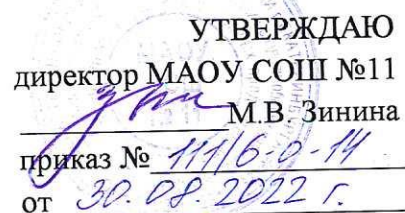 УТВЕРЖДАЮ
директор МАОУ СОШ №11
М.В. Зинина
приказ № 111/6-о-14
от 30.08.2022 г.